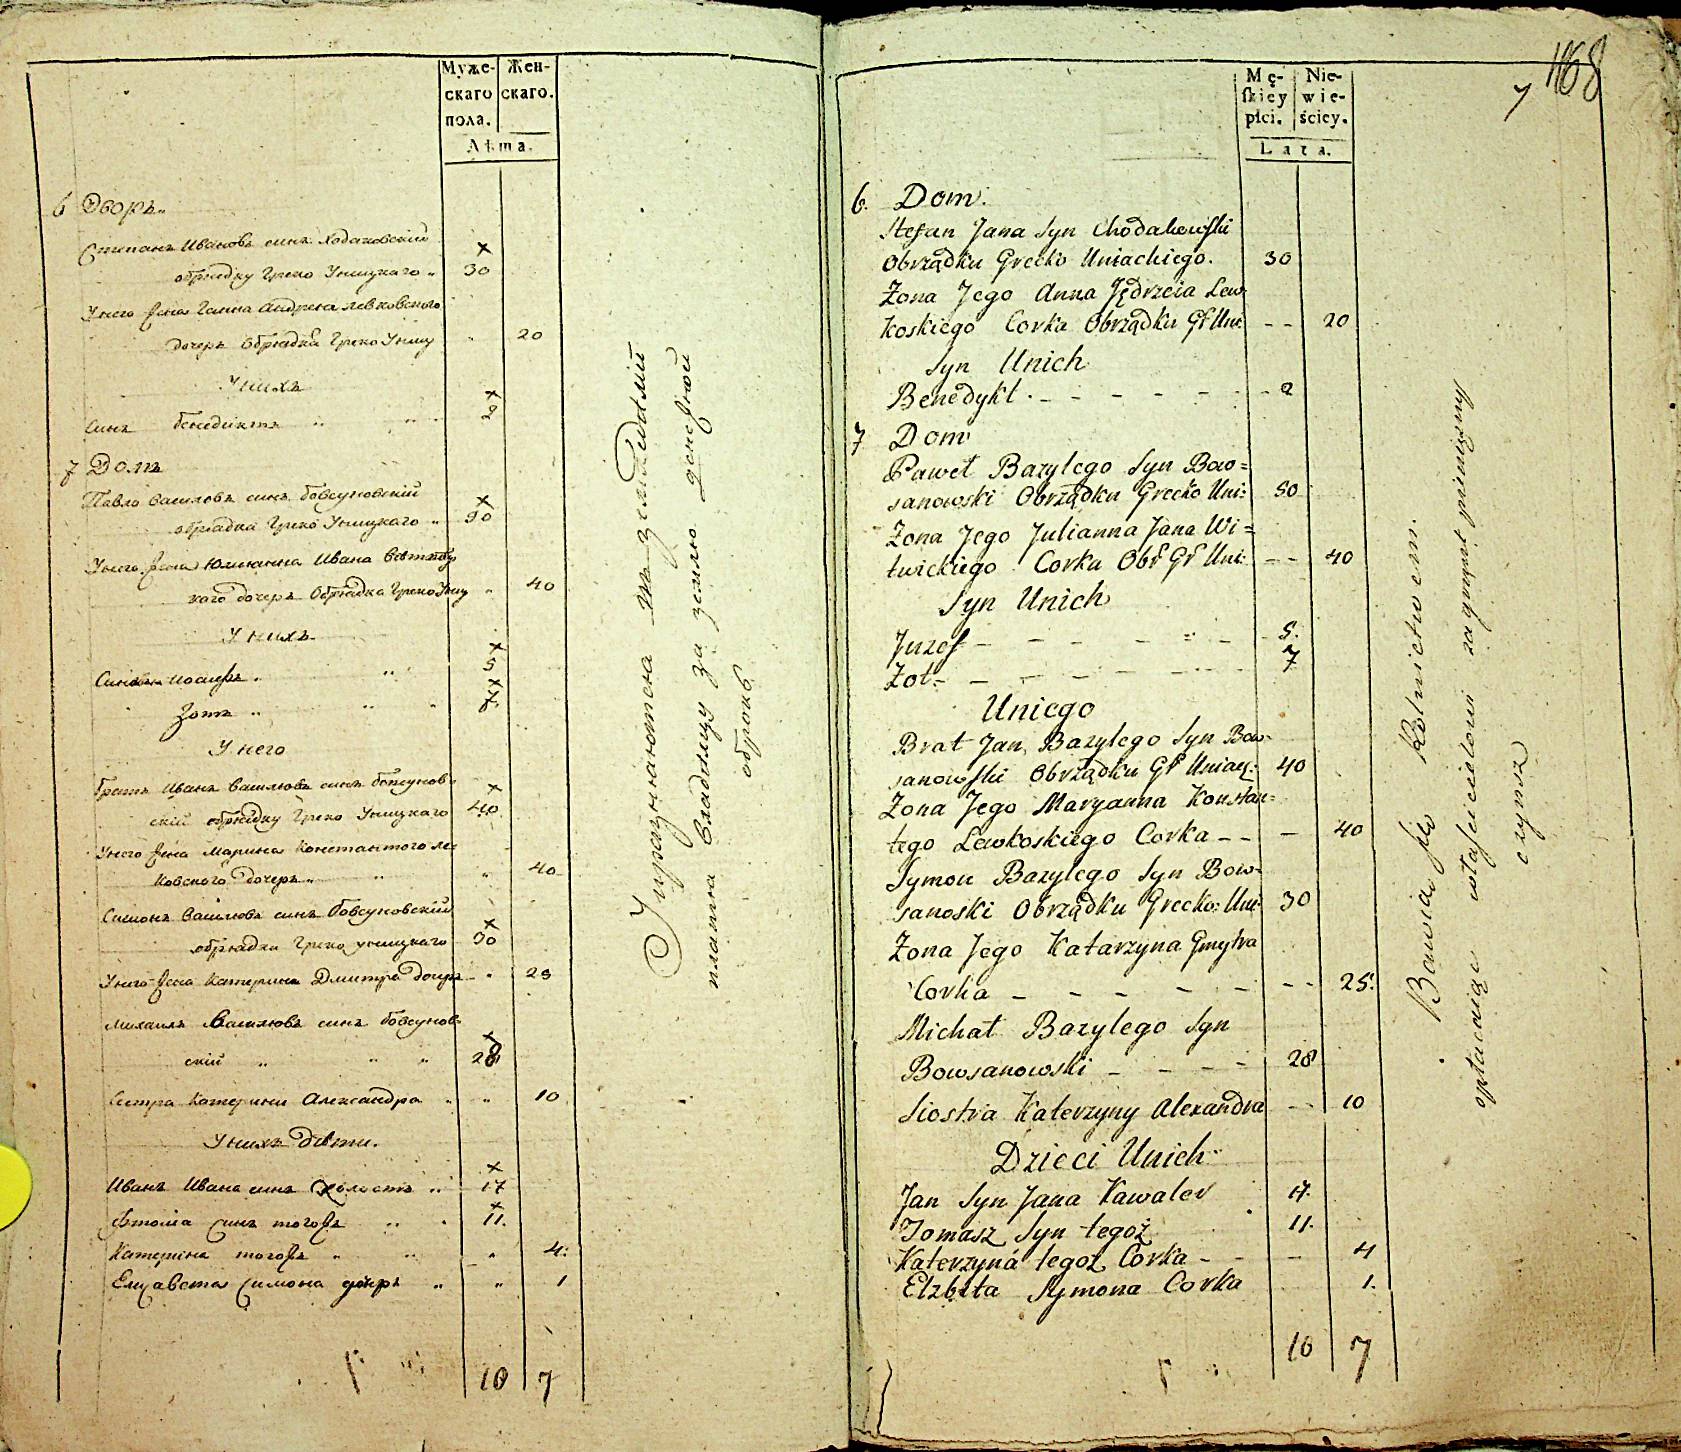 Муже-
скаго
пола.
Жен-
скаго.
Лѣта.
6 Дворъ
Степанъ Ивановъ синъ Ходаковский
обрядку Греко Уницкаго 30
У него жена Ганна Андрея Левковского
дочеръ обрядка Греко Униц 20
У нихъ
Синъ Бенедиктъ 2
7 Домъ
Павло Василювъ синъ Бовсуновский
обрядка Греко Уницкаго 50
У него жена Юлианна Ивана Витвиц
кого дочеръ Обрядка Греко Униц 40
У нихъ
Синовя Иосифъ 5
Зотъ 7
У него
Братъ Иванъ Василювъ синъ Бовсунов-
ский обрядку Греко Уницкаго 40
У него жена Марина Константого Ле-
ковского дочеръ 40
Симонъ Василювъ синъ Бовсуновский
обрядка Греко уницкаго 30
У него жена Катерина Дмитра дочеръ 25
Михаилъ Василювъ синъ Бовсунов-
ский 28
Сестра Катерини Александра 10
У нихъ дѣти.
Иванъ Ивана синъ Холостъ 17
Фтома Синъ тогожъ 11.
Катерина тогожъ 4:
Елизавета Симона дочеръ 1
10 7
Упражняются въ земледѣлии
платя владѣлцу за землю денежной
оброкъ
7 168
Mę-
skiey
płci.
Nie-
wie-
ściey.
Lata.
6. Dom.
Stefan Jana Syn Chodakowski
Obrządku Grecko Uniackiego. 30
Żona Jego Anna Jędrzeia Lew-
koskiego Corka Obrządku Gr Uni: - - 20
Syn Unich
Benedykt. - - - - - - 2
7 Dom
Paweł Bazylego Syn Bow=
sanowski Obrządku Grecko Uni: 50
Żona Jego Julianna Jana Wi=
twickiego Corka Obr Gr Uni: - - 40
Syn Unich
Juzef - - - - - - 5.
Zot - - - - - - 7
Uniego
Brat Jan Bazylego Syn Bow-
sanowski Obrządku Gr Uniac: 40
Żona Jego Maryanna Konstan-
tego Lewkoskiego Corka - - - 40
Symon Bazylego Syn Bow-
sanoski Obrządku Grecko: Uni: 30
Żona Jego Katarzyna Dmytra
Corka - - - - - - - 25.
Michał Bazylego Syn
Bowsanowski - - - - 28
Siostra Katerzyny Alexandra - - 10
Dzieci Unich
Jan Syn Jana Kawaler 17.
Tomasz Syn tegoż 11.
Katerzyna tegoż Corka - - 4
Elzbita Symona Corka 1.
10 7
Bawią się Rolnictwem.
opłacaiąc właścicielowi za grunt pieniężny
czynsz